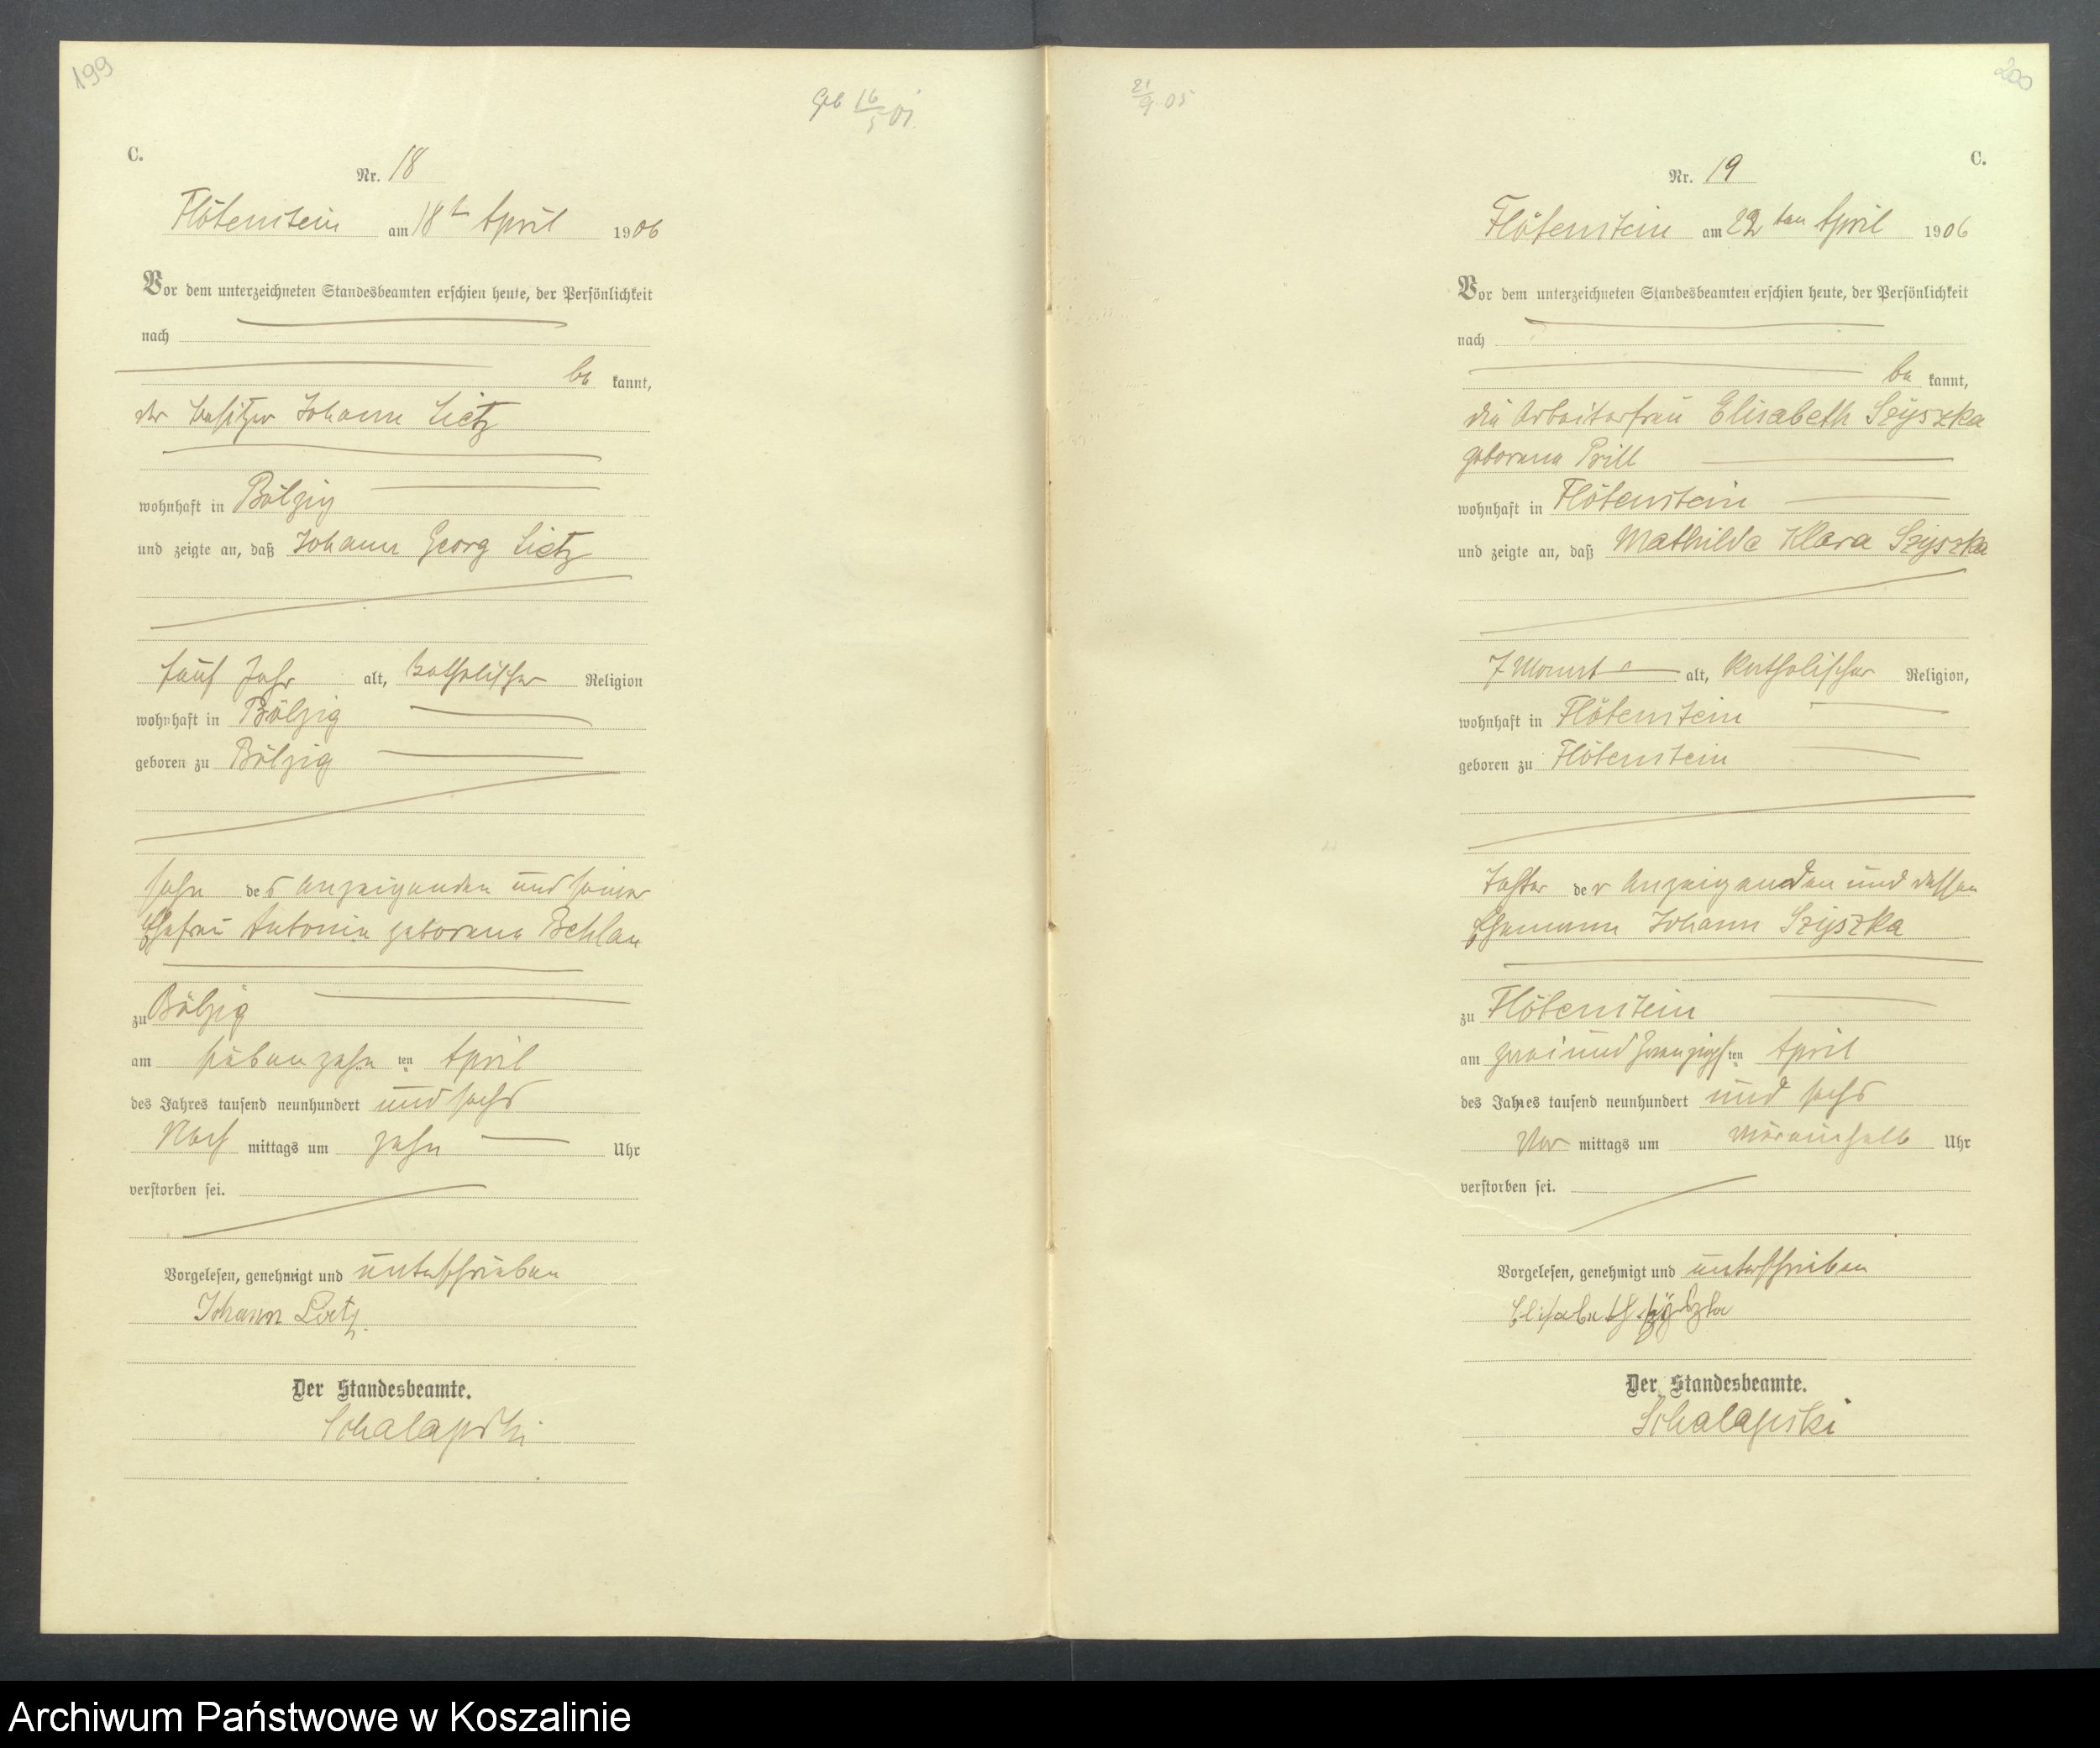 199
Geb 16/5 01.
C.
Nr. 18
Flötenstein am 18ten April 1906
Vor dem unterzeichneten Standesbeamten erschien heute, der Persönlichkeit
nach
be kannt,
der Besitzer Johann Lietz
wohnhaft in Bölzig
und zeigte an, daß Johann Georg Lietz
fünf Jahr alt, katholischer Religion
wohnhaft in Bölzig
geboren zu Bölzig
Sohn des Anzeigenden und seiner
Ehefrau Antonie geborene Behlau
zu Bölzig
am siebenzehn ten April
des Jahres tausend neunhundert und sechs
Nach mittags um zehn Uhr
verstorben sei.
Vorgelesen, genehmigt und unterschrieben
Johann Lietz.
Der Standesbeamte.
Schalapski
200
21/9 05
C.
Nr. 19
Flötenstein am 22ten April 1906
Vor dem unterzeichneten Standesbeamten erschien heute, der Persönlichkeit
nach
be kannt,
die Arbeiterfrau Elisabeth Szyszka
geborene Prill
wohnhaft in Flötenstein
und zeigte an, daß Mathilde Klara Szyszka
7 Monate alt, katholischer Religion,
wohnhaft in Flötenstein
geboren zu Flötenstein
Tochter der Anzeigenden und dessen
Ehemann Johann Szyszka
zu Flötenstein
am zwei und zwanzigs ten April
des Jahres tausend neunhundert und sechs
Vor mittags um Uhr
verstorben sei.
Vorgelesen, genehmigt und unterschrieben
Elisabeth Szyszka
Der Standesbeamte.
Schalapski
Archiwum Państwowe w Koszalinie